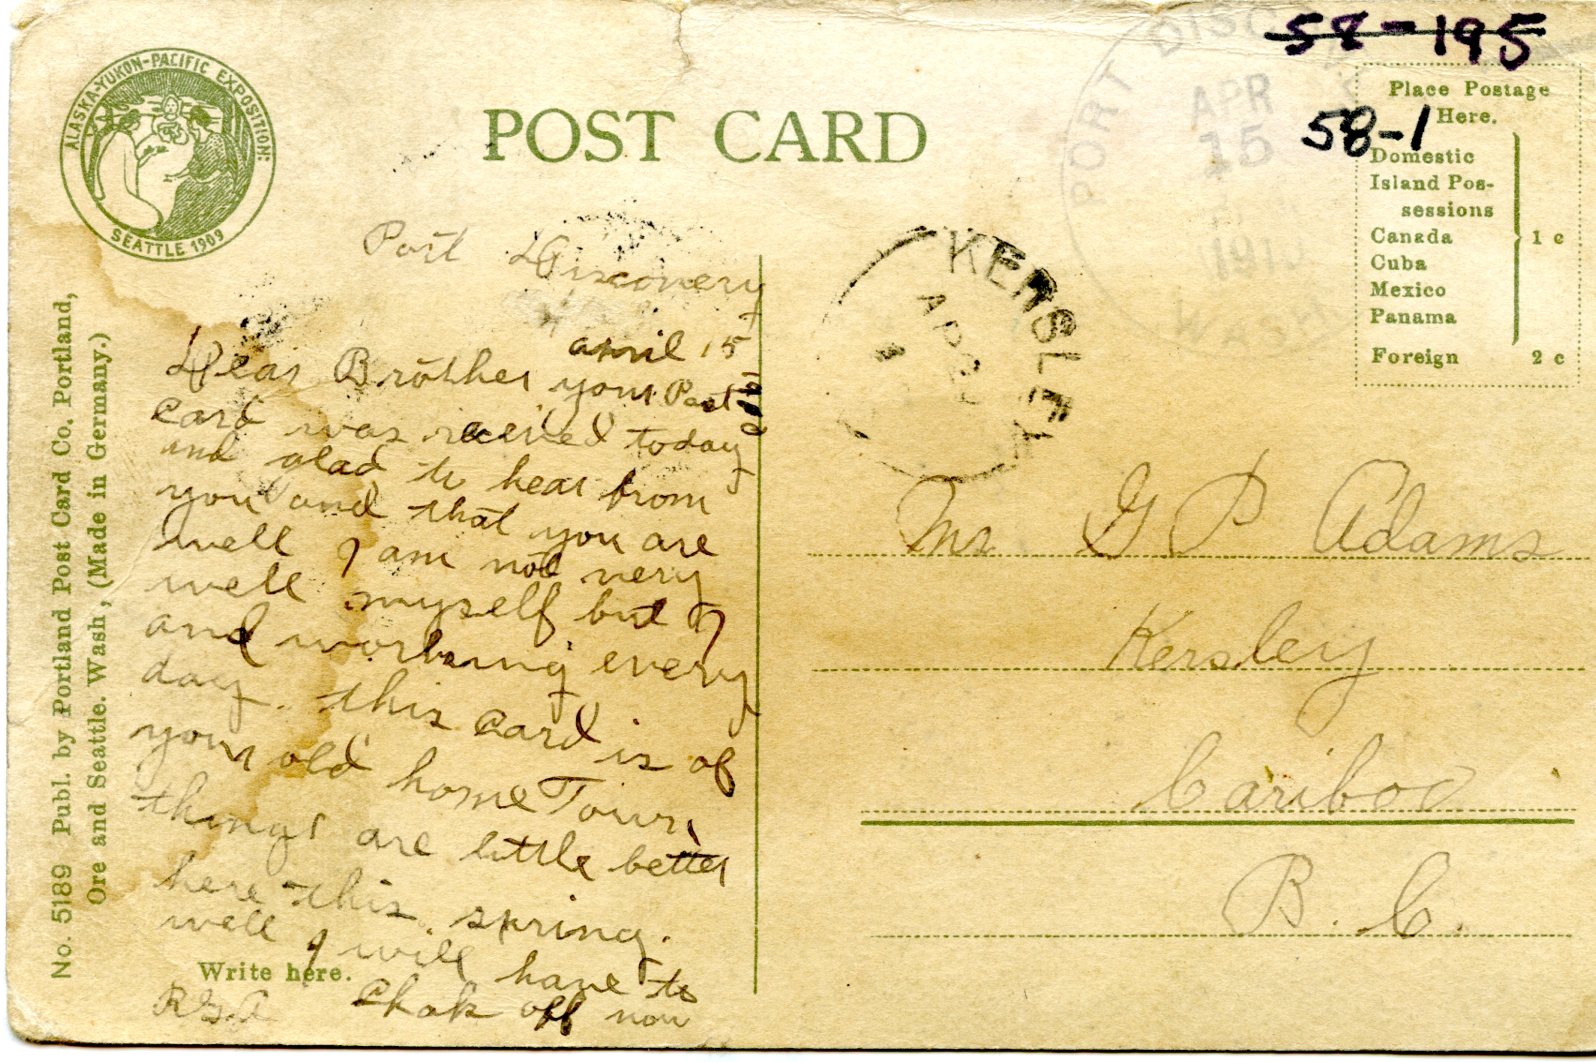 ALASKA-YUKON-PACIFIC EXPOSITION
SEATTLE 1909
POST CARD
58-195
58-1
PORT DISC
APR
15
1910
WASH
Place Postage
Here.
Domestic
Island Pos-
sessions
Canada
Cuba
Mexico
Panama
1 c
Foreign 2 c
KERSLEY
AP
No. 5189 Publ. by Portland Post Card Co. Portland,
Ore and Seattle. Wash, (Made in Germany.)
Port Discovery
april 15
1910
Dear Brother your Post
Card was received today
and glad to hear from
you and that you are
well I am not very
well myself but I
and working every
day. this card is of
your old home Town,
things are little better
here this spring.
well I will have to
Write here.
R.G.A Chok off now
Mr G P Adams
Kersley
Cariboo
B. C.